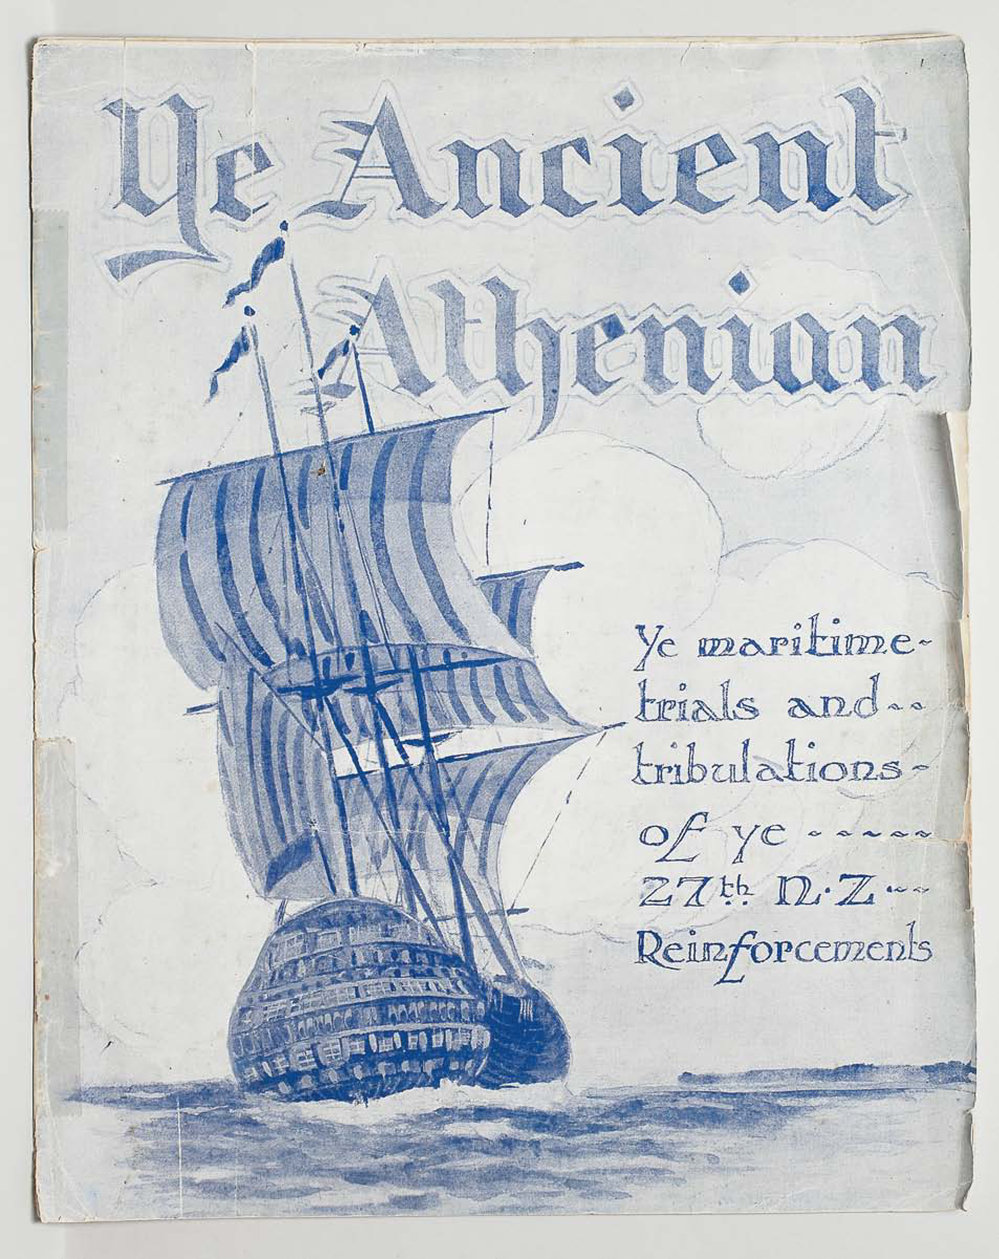 Ye Ancient
Athenian
Ye maritime-
trials and--
tribulations-
of ye -----
27th N·Z---
Reinforcements